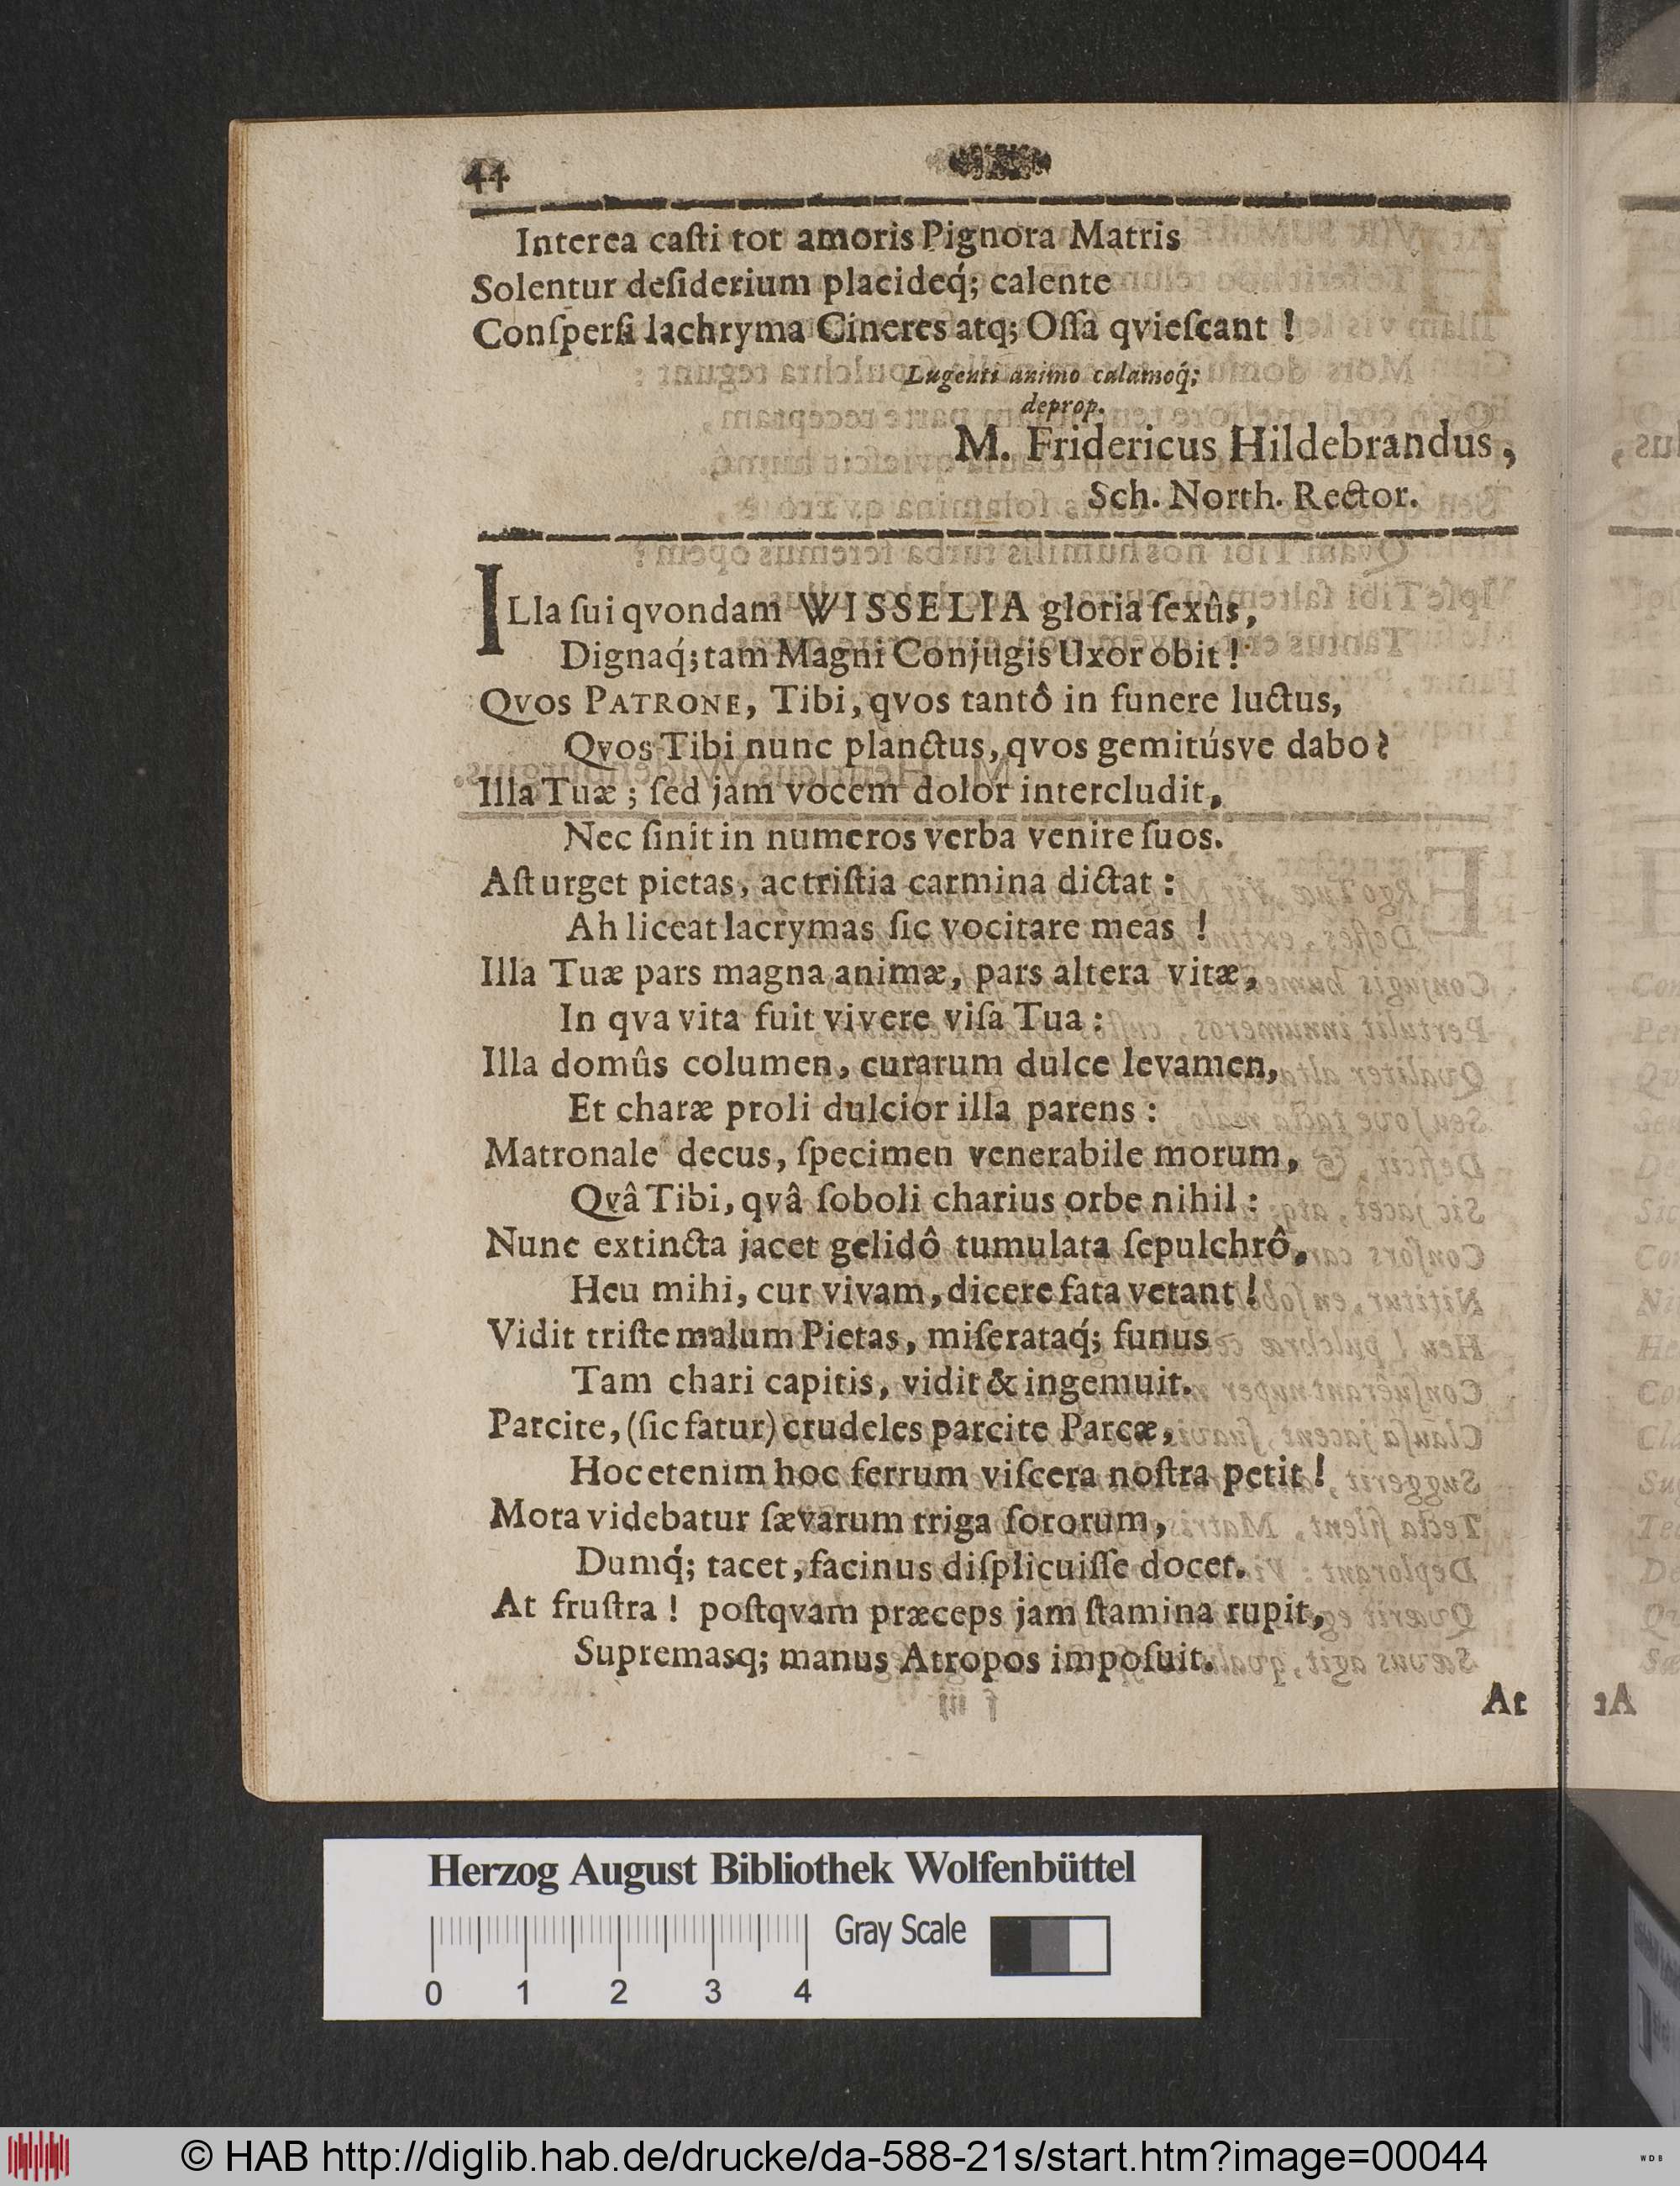 44
Interea caſti tot amoris Pignora Matris
Solentur deſiderium placideq́; calente
Conſperſi lachryma Cineres atq; Oſſa qvieſcant !
Lugenti animo calamoq́;
deprop.
M. Fridericus Hildebrandus,
Sch. North. Rector.
ILla ſui qvondam WISSELIA gloria ſexûs,
Dignaq́; tam Magni Conjugis Uxor obit!
Qvos PATRONE, Tibi, qvos tantô in funere luctus,
Qvos Tibi nunc planctus, qvos gemitúsve dabo?
Illa Tuæ; ſed jam vocem dolor intercludit,
Nec ſinit in numeros verba venire ſuos.
Aſt urget pietas, ac triſtia carmina dictat:
Ah liceat lacrymas ſic vocitare meas !
Illa Tuæ pars magna animæ, pars altera vitæ,
In qva vita fuit vivere viſa Tua:
Illa domûs columen, curarum dulce levamen,
Et charæ proli dulcior illa parens:
Matronale decus, ſpecimen venerabile morum,
Qvâ Tibi, qvâ ſoboli charius orbe nihil:
Nunc extincta jacet gelidô tumulata ſepulchrô,
Heu mihi, cur vivam, dicere fata vetant!
Vidit triſte malum Pietas, miſerataq́; funus
Tam chari capitis, vidit & ingemuit.
Parcite, (ſic fatur) crudeles parcite Parcæ,
Hoc etenim hoc ferrum viſcera noſtra petit!
Mota videbatur ſævarum triga ſororum,
Dumq́; tacet, facinus diſplicuiſſe docet.
At fruſtra! poſtqvam præceps jam ſtamina rupit,
Supremasq; manus Atropos impoſuit.
At
Herzog August Bibliothek Wolfenbüttel
Gray Scale
0 1 2 3 4
© HAB http://diglib.hab.de/drucke/da-588-21s/start.htm?image=00044
WDB